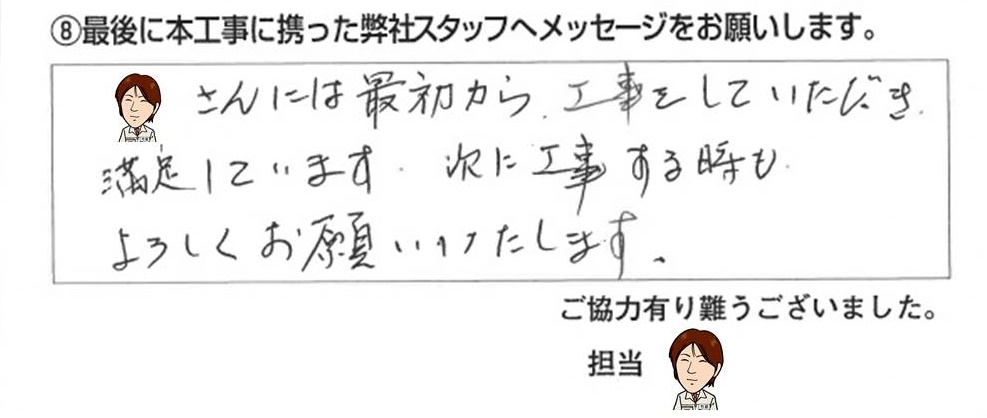 ⑧最後に本工事に携った弊社スタッフへメッセージをお願いします。
さんには最初から、工事をしていただき、
満足しています。次に工事する時も
よろしくお願いいたします。
ご協力有り難うございました。
担当